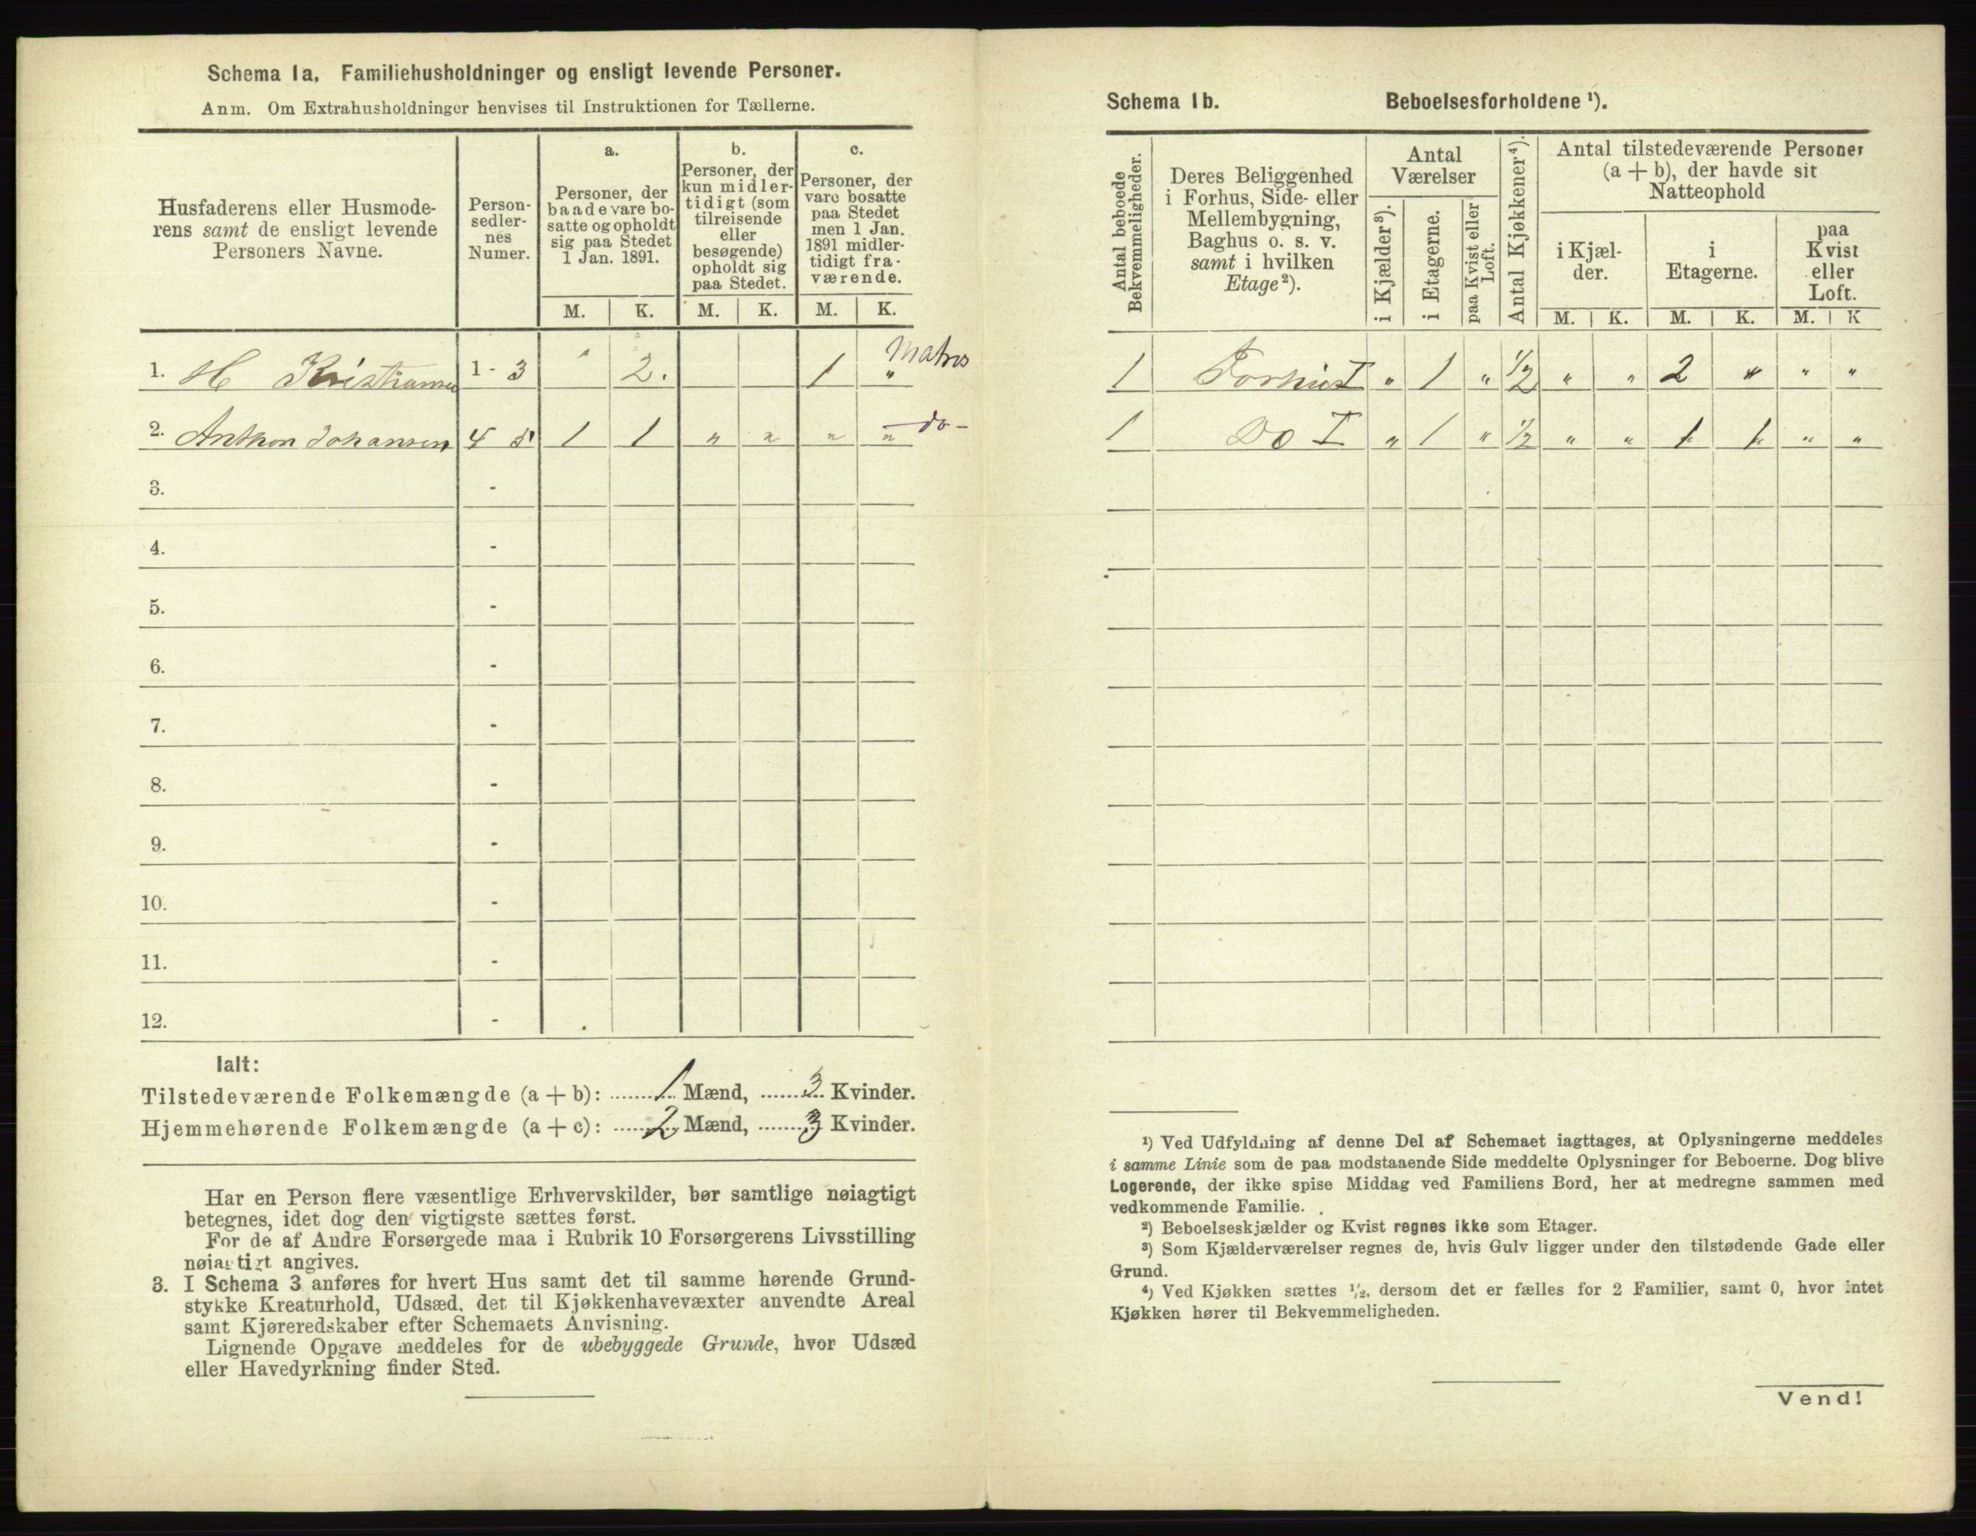 Schema 1a. Familiehusholdninger og ensligt levende Personer.
Anm. Om Extrahusholdninger henvises til Instruktionen for Tællerne.
Husfaderens eller Husmode-
rens samt de ensligt levende
Personers Navne.
Person-
sedler-
nes
Numer.
a.
Personer, der
baade vare bo-
satte og opholdt
sig paa Stedet
1 Jan. 1891.
b.
Personer, der
kun midler-
tidigt (som
tilreisende
eller
besøgende)
opholdt sig
paa Stedet.
c.
Personer, der
vare bosatte
paa Stedet
men 1 Jan.
1891 midler-
tidigt fra-
værende.
M. K. M. K. M. K.
1. H Kristiansen 1 - 3 " 2. 1 " Matros
2. Anthon Johansen 4 5 1 1 " " " " do -
3. -
4. -
5. -
6. -
7. -
8. -
9. -
10. -
11. -
12. -
Ialt:
Tilstedeværende Folkemængde (a + b): 1 Mænd, 3 Kvinder.
Hjemmehørende Folkemængde (a + c): 2 Mænd, 3 Kvinder.
Har en Person flere væsentlige Erhvervskilder, bør samtlige nøiagtigt
betegnes, idet dog den vigtigste sættes først.
For de af Andre Forsørgede maa i Rubrik 10 Forsørgerens Livsstilling
nøiagtigt angives.
3. I Schema 3 anføres for hvert Hus samt det til samme hørende Grund-
stykke Kreaturhold, Udsæd, det til Kjøkkenhavevæxter anvendte Areal
samt Kjøreredskaber efter Schemaets Anvisning.
Lignende Opgave meddeles for de ubebyggede Grunde, hvor Udsæd
eller Havedyrkning finder Sted.
Schema 1b. Beboelsesforholdene ¹).
Antal beboede
Bekvemmeligheder.
Deres Beliggenhed
i Forhus, Side- eller
Mellembygning,
Baghus o. s. v.
samt i hvilken
Etage ²).
Antal
Værelser
i Kjælder ³).
i Etagerne.
paa Kvist eller
Loft.
Antal Kjøkkener ⁴).
Antal tilstedeværende Personer
(a + b), der havde sit
Natteophold
i Kjæl-
der.
i
Etagerne.
paa
Kvist
eller
Loft.
M. K. M. K. M. K
1 Forhus I " 1 " 1/2 " " 2 " " "
1 Do I " 1 " 1/2 " " 1 1 " "
¹) Ved Udfyldning af denne Del af Schemaet iagttages, at Oplysningerne meddeles
i samme Linie som de paa modstaaende Side meddelte Oplysninger for Beboerne. Dog blive
Logerende, der ikke spise Middag ved Familiens Bord, her at medregne sammen med
vedkommende Familie.
²) Beboelseskjælder og Kvist regnes ikke som Etager.
³) Som Kjælderværelser regnes de, hvis Gulv ligger under den tilstødende Gade eller
Grund.
⁴) Ved Kjøkken sættes 1/2, dersom det er fælles for 2 Familier, samt 0, hvor intet
Kjøkken hører til Bekvemmeligheden.
Vend!